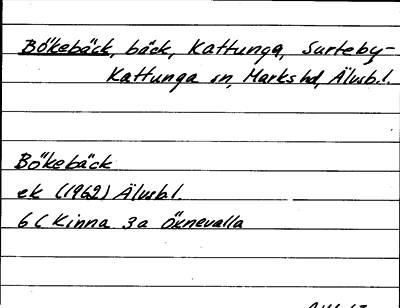 Bökebäck, bäck, Kattunga, Surteby-
Kattunga sn, Marks hd, Älvsb.l.
Bökebäck
ek (1962) Älvsb.l.
6C Kinna 3a Öxnevalla